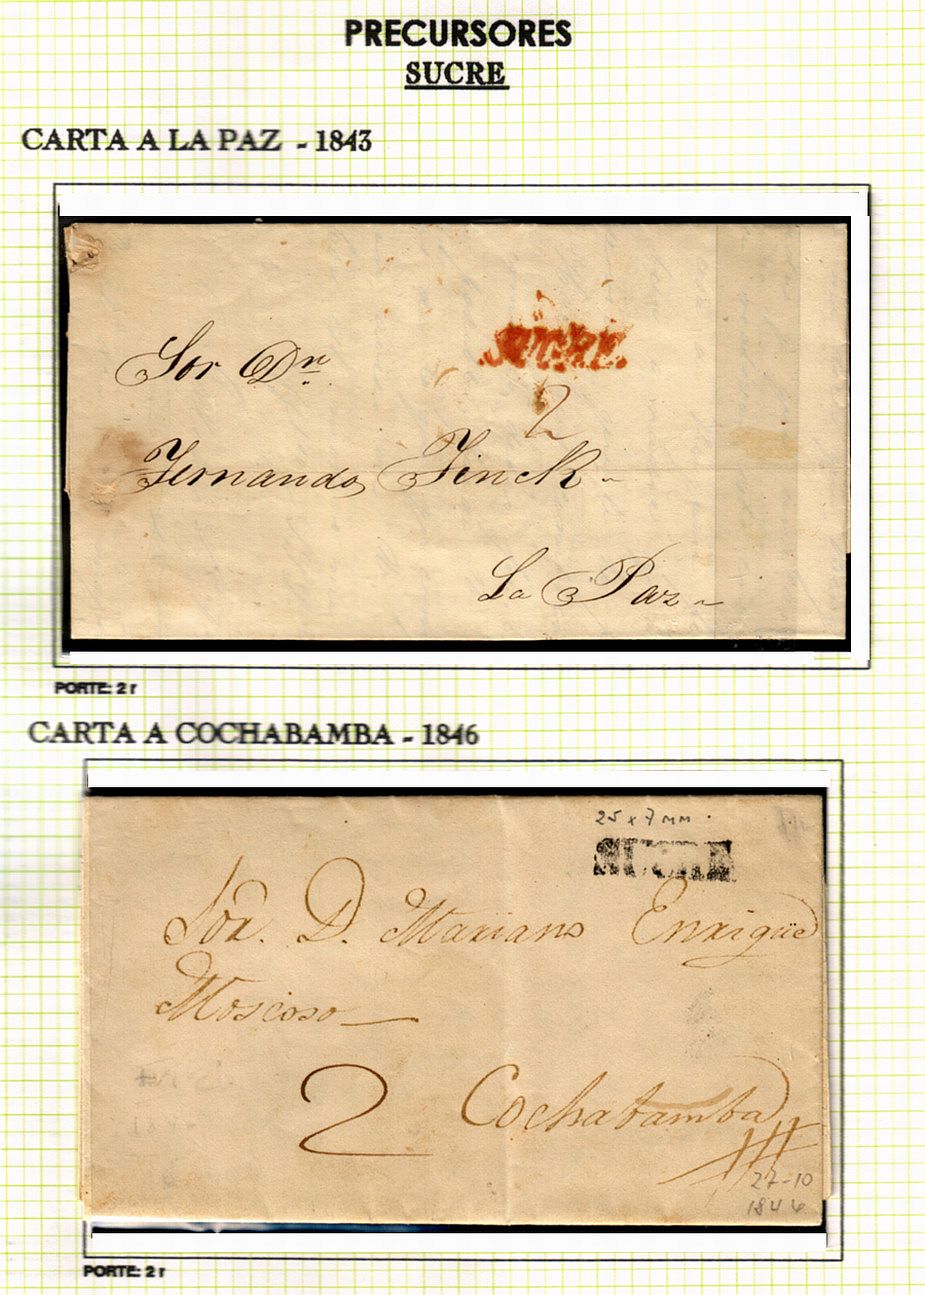 PRECURSORES
SUCRE
CARTA A LA PAZ - 1843
SUCRE.
Sor Dn
2
Fernando Finck
La Paz
PORTE: 2 r
CARTA A COCHABAMBA - 1846
25 x 7 mm
SUCRE
Sor. D. Mariano Enrique
Moscoso
2 Cochabamba
27-10
PORTE: 2 r